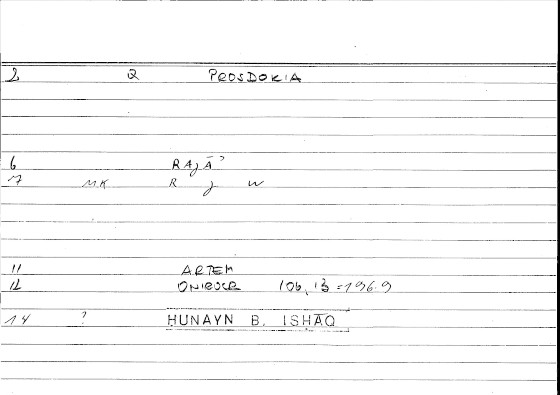 2 Q PROSDOKIA
6 RAJĀʾ
7 MK R j w
11 ARTEM
12 ONIROCR 106, 13 = 196.9
14 ? HUNAYN B. ISHĀQ